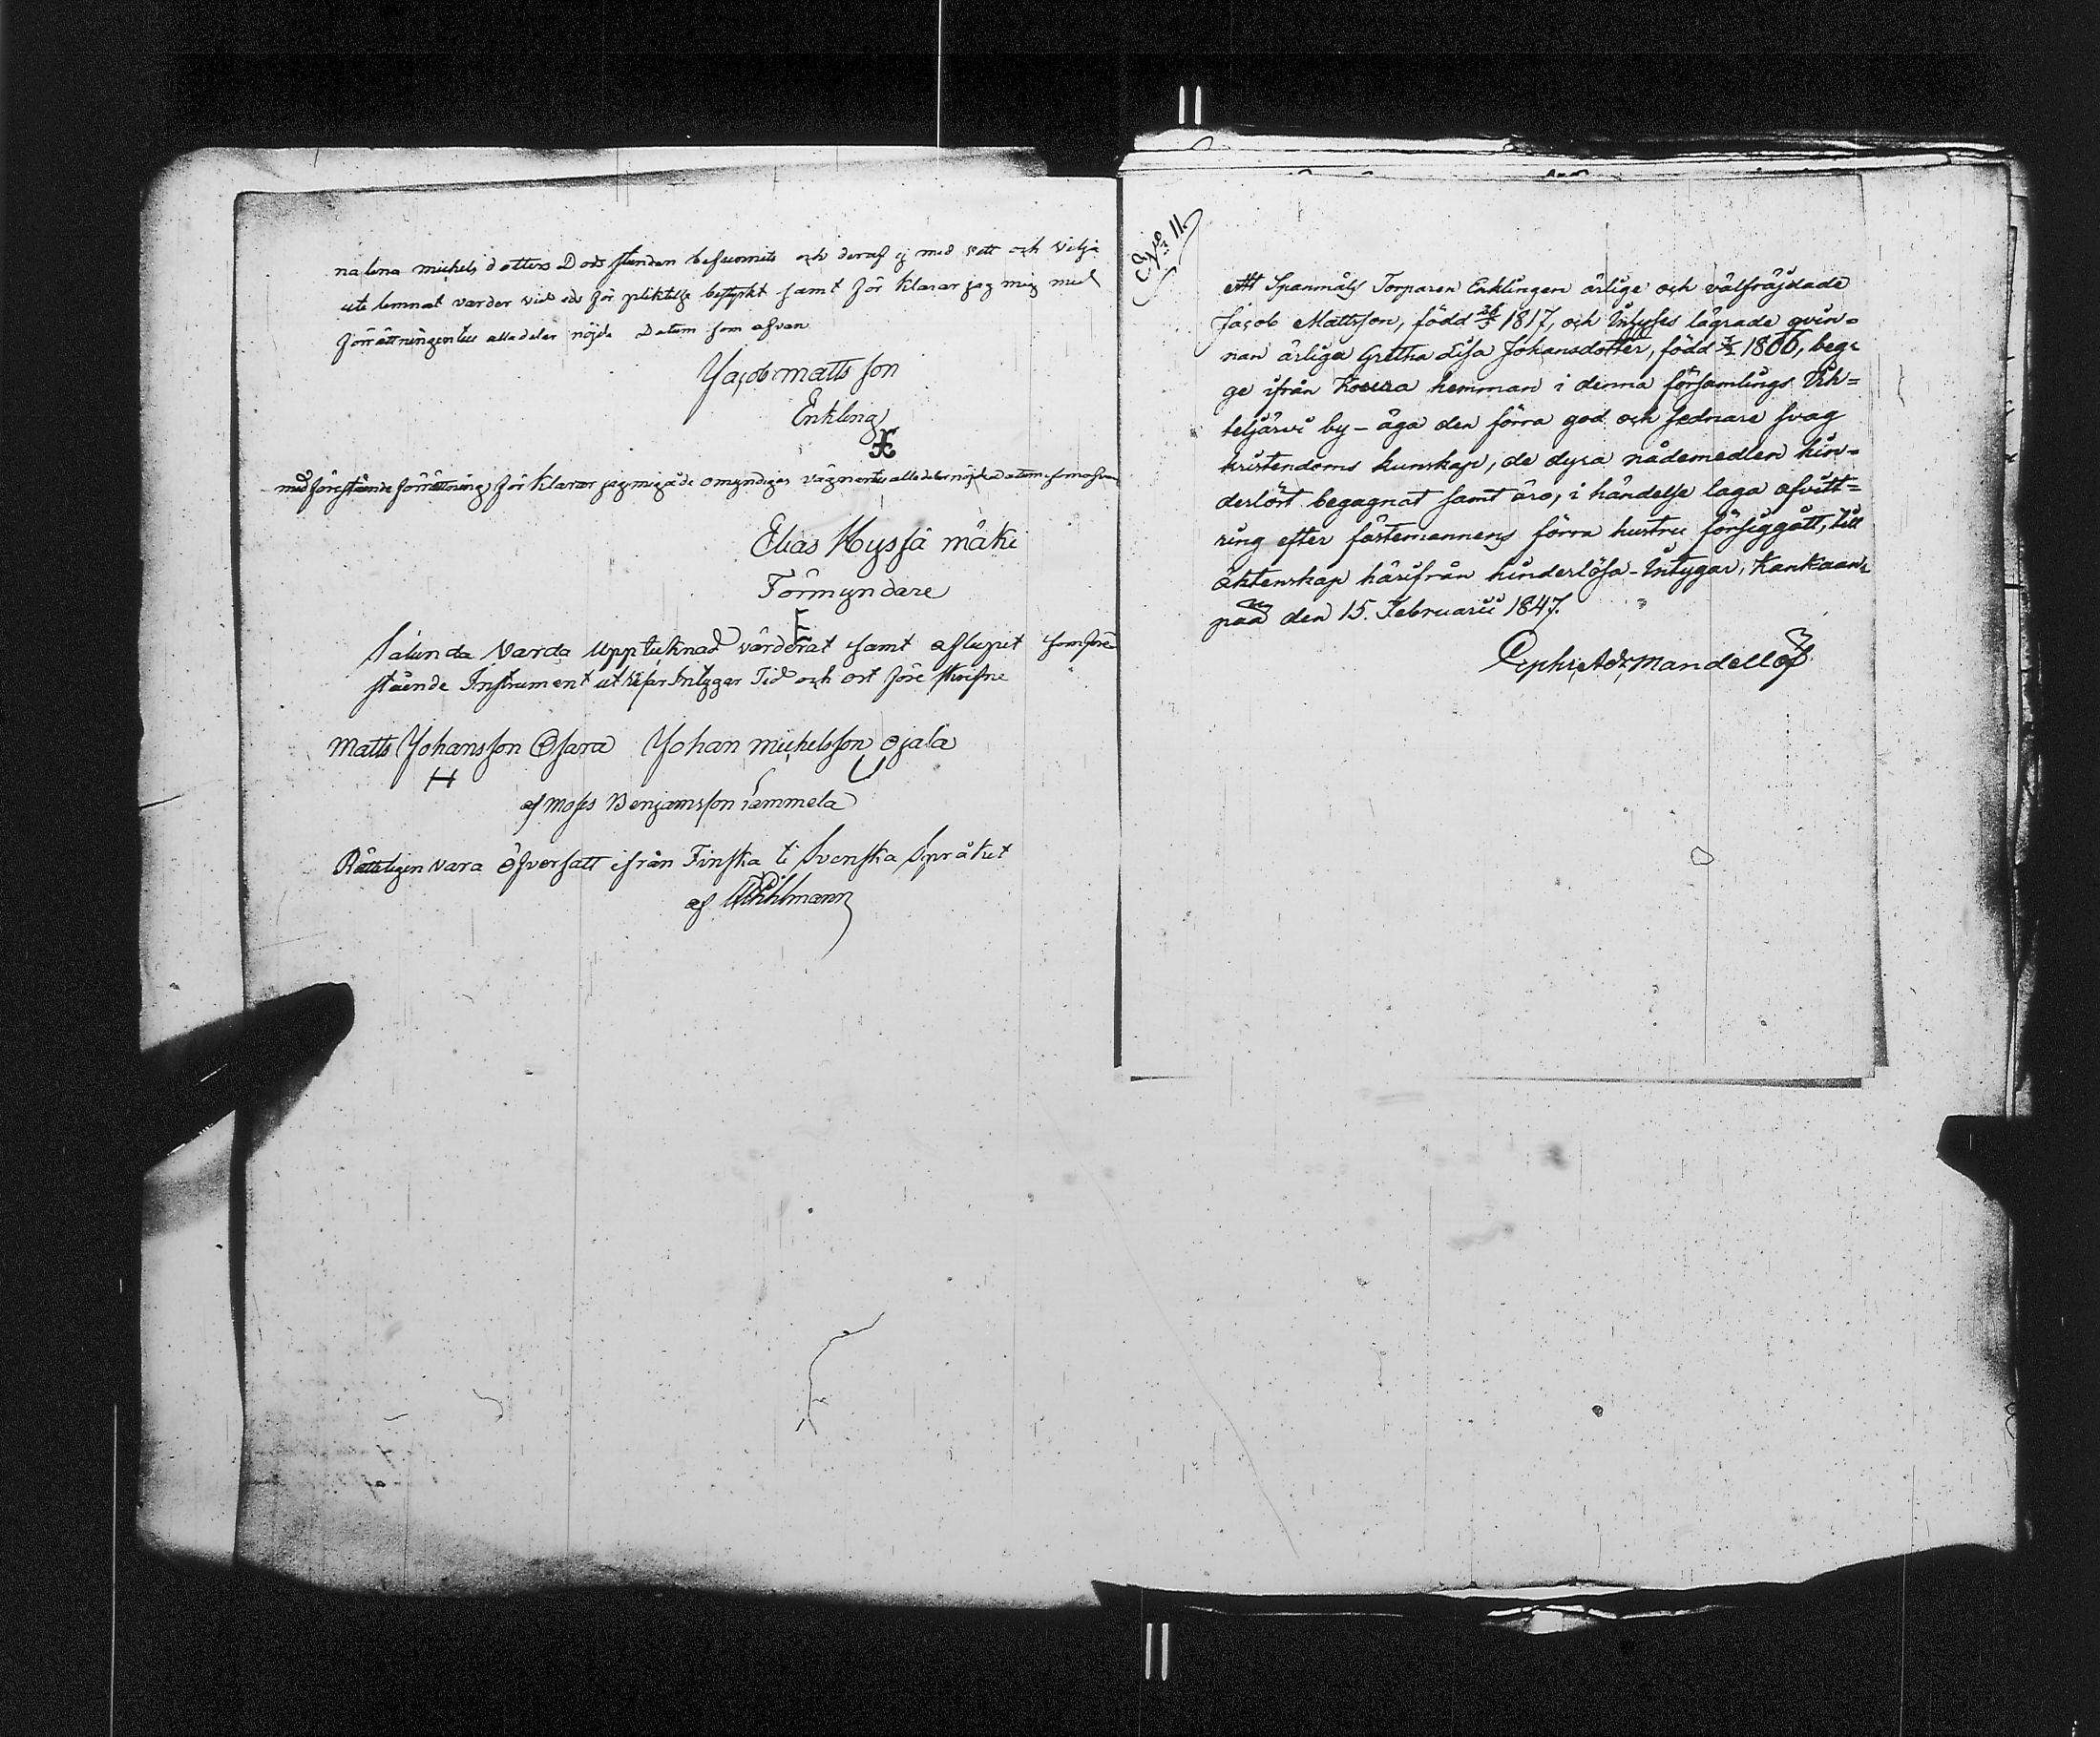 na lena michels dotters Döds stunden befunnits och deraf ej med vett och vilja
ute lemnat varder vid eds för pliktelse bestyrkt samt för klarar jag mig med
förrättningen till alla delar nöjd Datum som ofvan
Jacob matts son
Enkling
med förestående förrättning för klarar jag mig å de omyndigas vägnar till alla delar nöjd Datum som ofvan
Elias Hyssä mäki
Förmyndare
Sålunda varda upptecknad värderat samt aflupet som före
stående Instrument utvisar Intygar Tid och ort före skrifne
Matts Johansson Osara Johan michelsson Ojala
H
af Moses Benjamsson Lammela
Rätteligen vara Öfversatt ifrån Finska ti Svenska Språket
af Wihlmann
11.
Att Spanmåls Torparen Enklingen ärlige och välfräjdade
Jacob Mattsson, född 1817, och Inhyses lägrade qvin=
nan ärliga Gretha Lisa Johansdotter, född 1806, beg=
ge ifrån Koura hemman i denna församlings Vih=
teljärvi by – äga den förra god och sednare svag
kristendoms kunskap, de dyra nådemedlen hin=
derlöst begagnat samt äro, i händelse laga afvitt=
ring efter fästemannens förra hustru försiggått, till
äktenskap härifrån hinderlösa – Intygar, Kankaan=
pää den 15. Februarii 1847.
Mandellöf